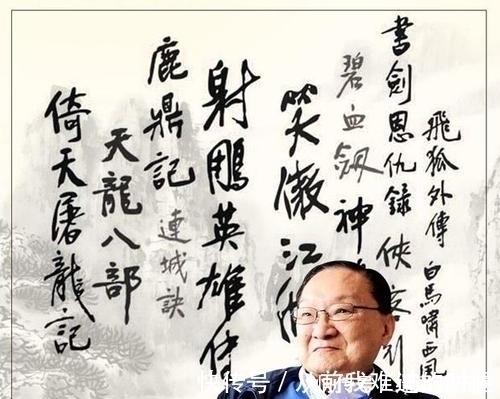 飛狐外傳 白馬嘯西
書劍恩仇錄 俠客
碧血劍 神
笑傲江
射鵰英雄傳
鹿鼎記 連城訣
天龍八部
倚天屠龍記
快传号 / 从前我难